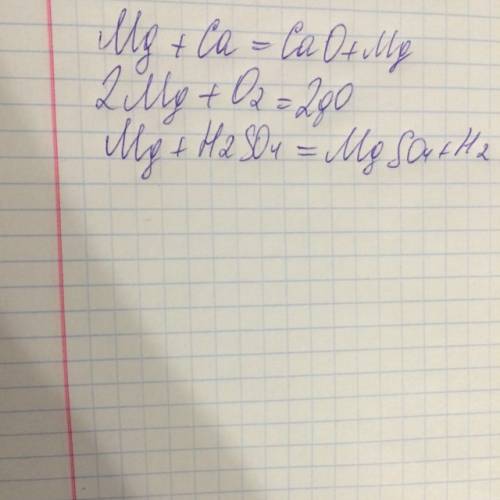 Mg + Ca = CaO + Mg
2Mg + O2 = 2gO
Mg + H2SO4 = MgSO4 + H2